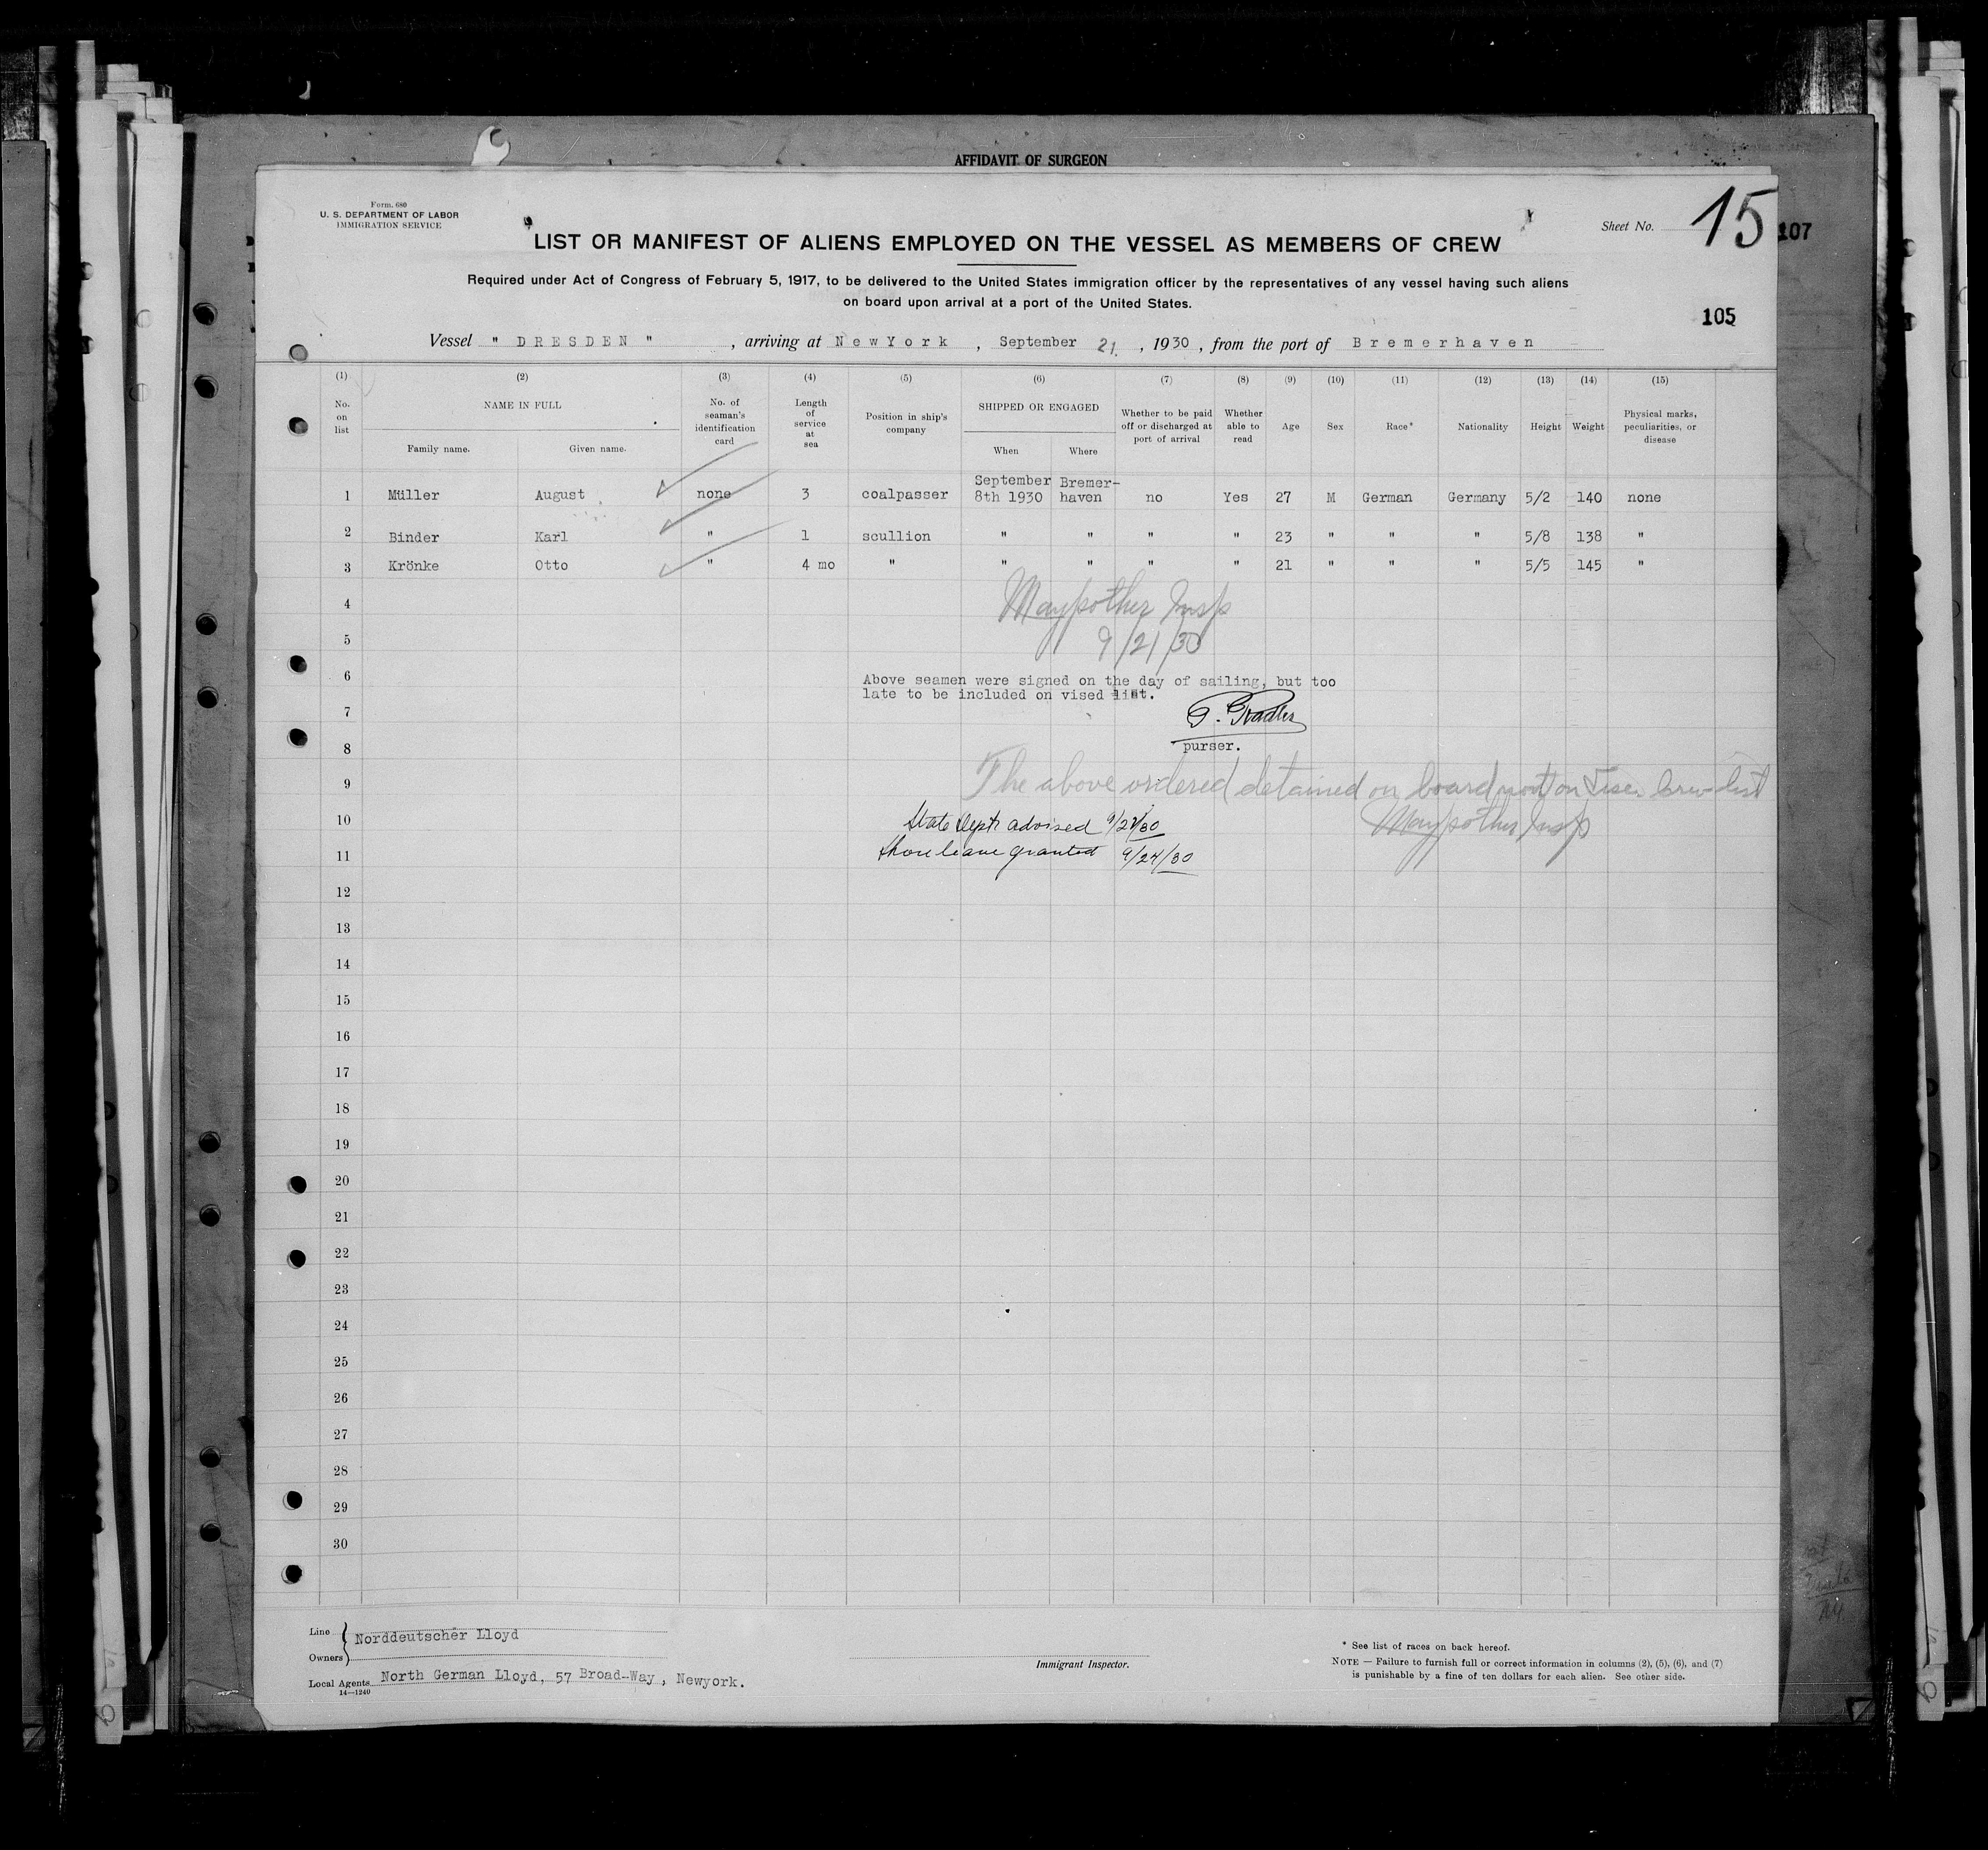 AFFIDAVIT OF SURGEON
Form. 680
U. S. DEPARTMENT OF LABOR
IMMIGRATION SERVICE
Sheet No. 15
107
LIST OR MANIFEST OF ALIENS EMPLOYED ON THE VESSEL AS MEMBERS OF CREW
Required under Act of Congress of February 5, 1917, to be delivered to the United States immigration officer by the representatives of any vessel having such aliens
on board upon arrival at a port of the United States.
105
Vessel " DRESDEN " , arriving at NewYork , September 21. , 1930 , from the port of Bremerhaven
(1) (2) (3) (4) (5) (6) (7) (8) (9) (10) (11) (12) (13) (14) (15)
No. on list
NAME IN FULL
Family name. Given name.
No. of seaman's identification card
Length of service at sea
Position in ship's company
SHIPPED OR ENGAGED
When Where
Whether to be paid off or discharged at port of arrival
Whether able to read
Age
Sex
Race*
Nationality
Height
Weight
Physical marks, peculiarities, or disease
1 Müller August none 3 coalpasser September 8th 1930 Bremer-haven no Yes 27 M German Germany 5/2 140 none
2 Binder Karl " 1 scullion " " " " 23 " " " 5/8 138 "
3 Krönke Otto " 4 mo " " " " " 21 " " " 5/5 145 "
4
Maypother Insp
5
9/21/30
6
Above seamen were signed on the day of sailing, but too
late to be included on vised list.
7
8
purser.
9
The above ordered detained on board not on Vise. Crew list
10
State Dept advised
Maypother Insp
11
Shore leave granted 9/24/30
12
13
14
15
16
17
18
19
20
21
22
23
24
25
26
27
28
29
30
Line
Owners
Norddeutscher Lloyd
Local Agents North German Lloyd, 57 Broad-Way, Newyork.
14—1240
Immigrant Inspector.
* See list of races on back hereof.
NOTE — Failure to furnish full or correct information in columns (2), (5), (6), and (7)
is punishable by a fine of ten dollars for each alien. See other side.